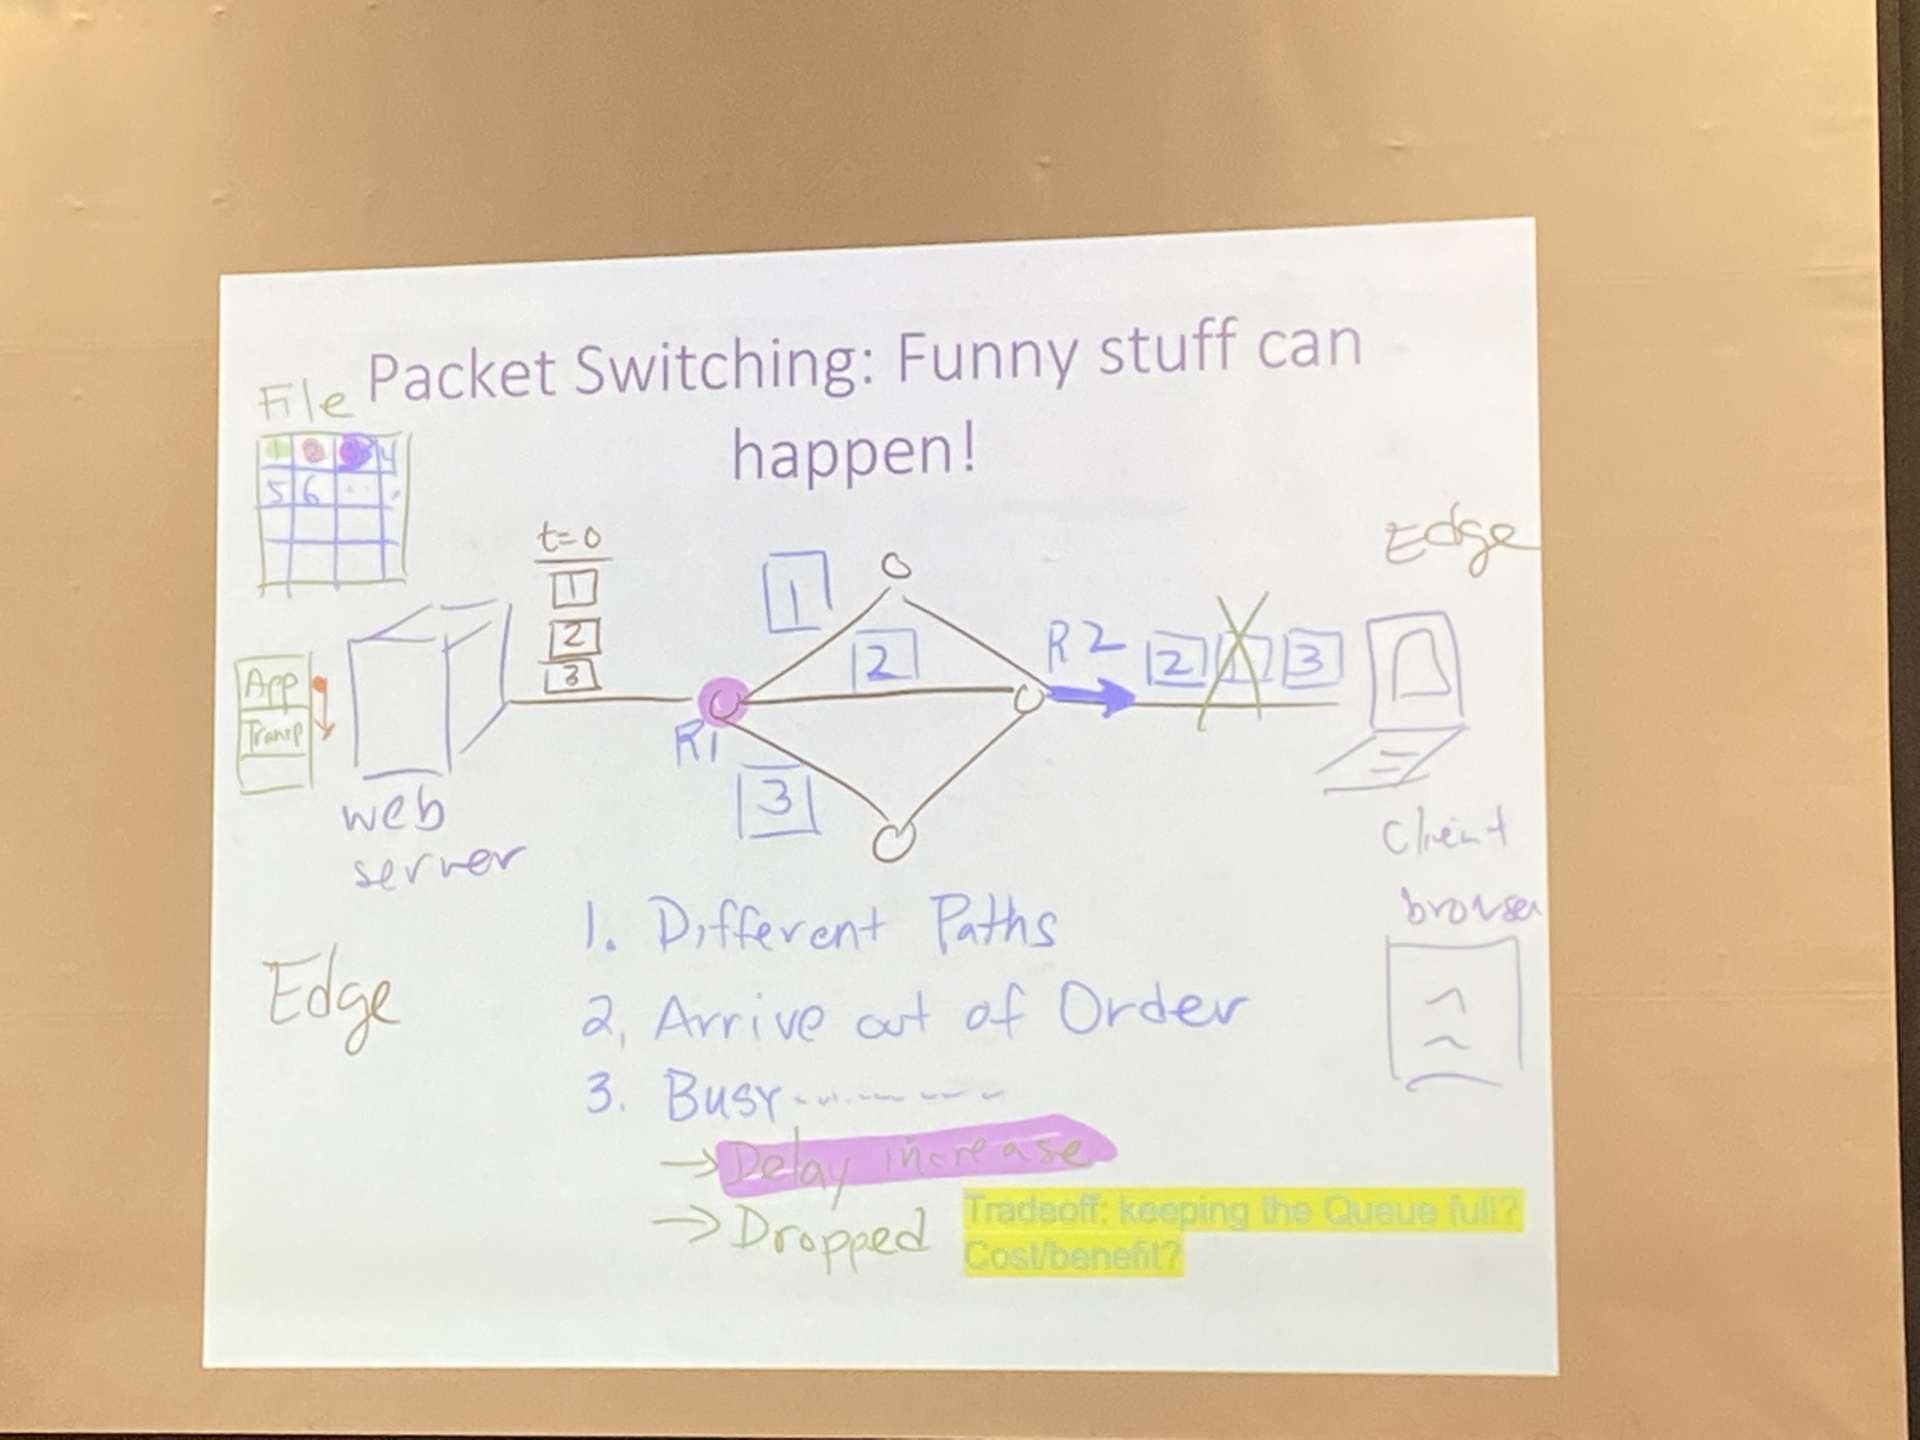 Packet Switching: Funny stuff can
happen!
File
1 2 3 4
5 6 . . .
t=0
1
2
3
App
Transp
web
server
Edge
R1
1
2
3
R2
2 1 3
Edge
Client
browser
1. Different Paths
2, Arrive out of Order
3. Busy
→ Delay increase
→ Dropped
Tradeoff: keeping the Queue full?
Cost/benefit?